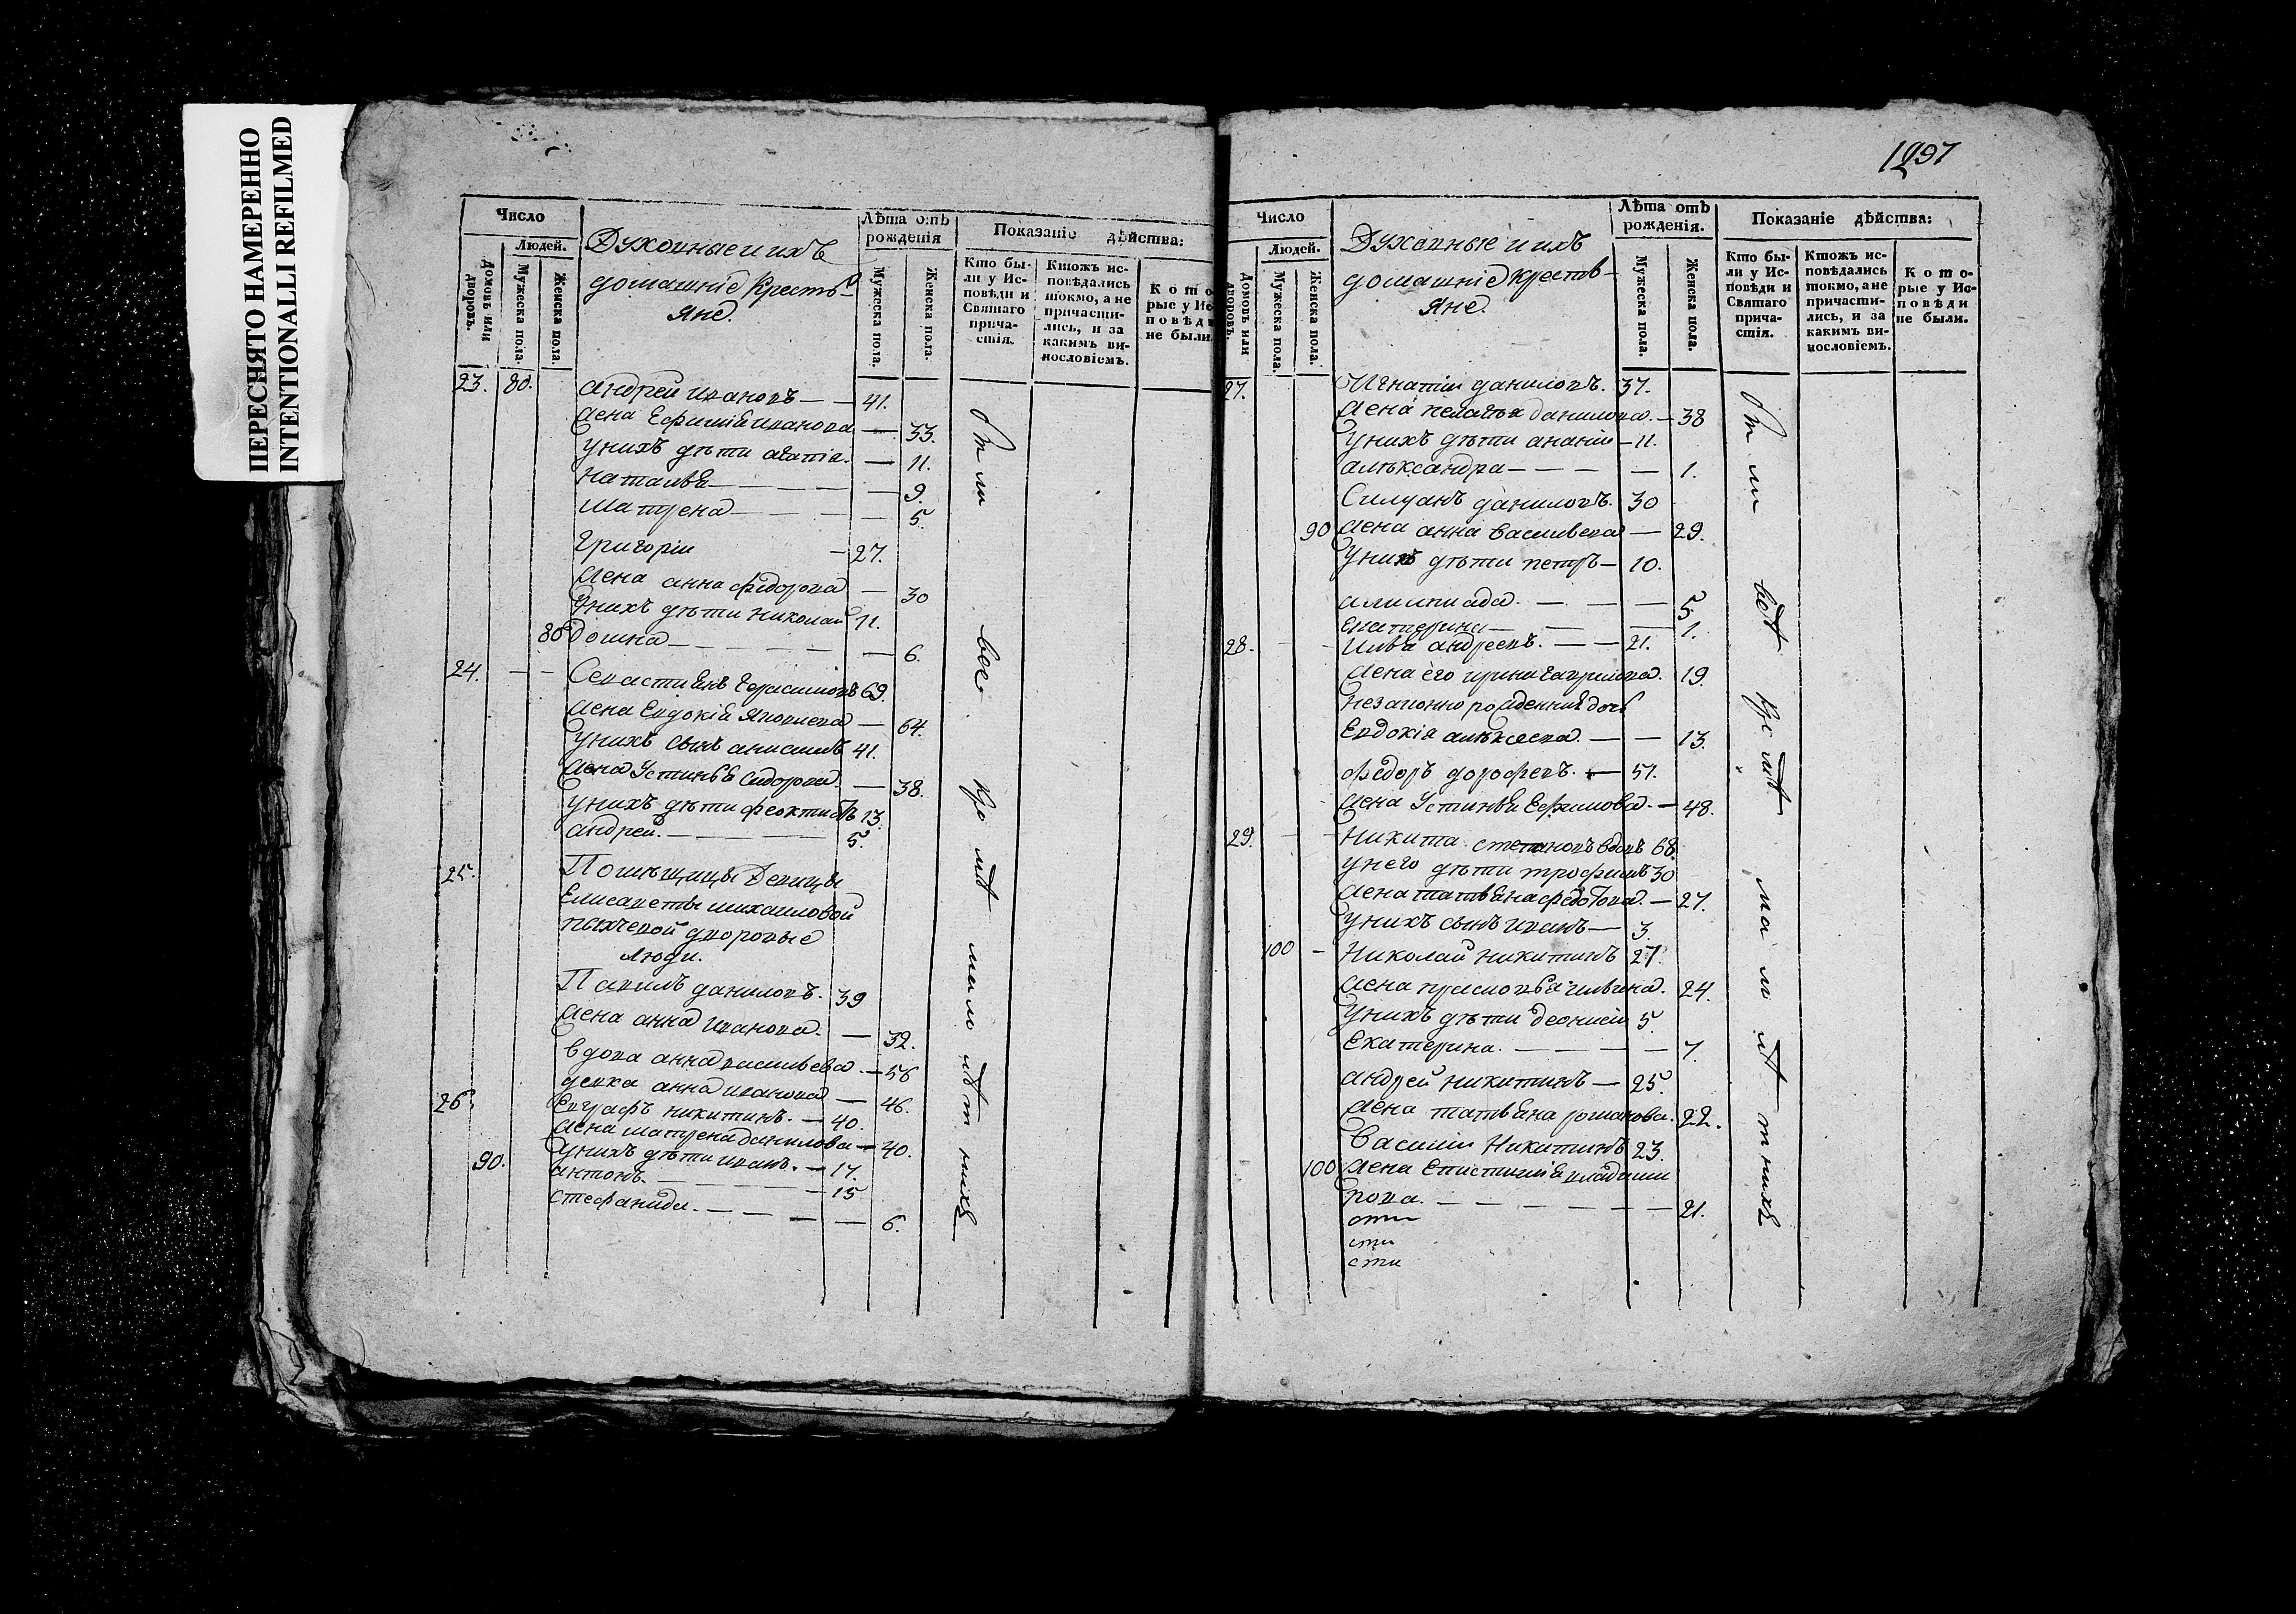 ПЕРЕСНЯТО НАМЕРЕННО
INTENTIONALLI REFILMED
Число
Людей.
Домовъ или дворовъ.
Мужеска пола.
Женска пола.
Духовные и ихъ
домашніе Кресть-
яне.
Лѣта отъ рожденія
Мужеска пола.
Женска пола.
Показаніе дѣйства:
Кто бы-
ли у Ис-
повѣди и
Святаго
прича-
стія.
Ктожъ ис-
повѣдались
токмо, а не
причасти-
лись, и за
какимъ ви-
нословіемъ.
Кото
рые у Ис
повѣд
не были.
23. 80. андрей ивановъ — — 41.
жена Ефиміѣ иванова — 33.
унихъ дѣти агапіа. — 11.
наталья — — — — — 9.
матрена — — — — 5.
григоріи — 27.
жена анна федорова — 30
унихъ дѣти николаи 11.
80 домна — — — — — — 6.
24. — — Севастиянъ герасимовъ 69.
жена Евдокіѣ яковлева — 64.
унихъ сынъ анисимъ 41.
жена Устинья Сидорова. — 38.
унихъ дѣти феоктистъ 13.
андреи. — — — 5.
25. Помѣщицы Девицы
Елисаветы михаиловой
дворовые
люди.
Павилъ даниловъ. 39
жена анна иванова. — 32.
вдова анна васильева. — 56
девка анна иванова — 46.
26. Евграфъ никитинъ. — 40.
жена матрена данилова — 40.
90. унихъ дѣти иванъ. — 17.
антонъ. — — — — 15
стефанида. — — — — 6.
все
1297
Число
Людей.
Домовъ или дворовъ.
Мужеска пола.
Женска пола.
Духовные и ихъ
домашніе Кресть-
яне.
Лѣта отъ рожденія.
Мужеска пола.
Женска пола.
Показаніе дѣйства:
Кто бы-
ли у Ис-
повѣди и
Святаго
прича-
стія.
Ктожъ ис-
повѣдались
токмо, а не
причасти-
лись, и за
какимъ ви-
нословіемъ.
Кото-
рые у Ис-
повѣди
не были.
27. Игнатіи даниловъ. 37.
жена пелагѣя данилова. — 38
унихъ дѣти ананіи — 11.
алѣксандра — — — — 1.
Силуанъ даниловъ. 30
90 жена анна васильева — 29.
унихъ дѣти петръ — 10.
алимпиада. — — — 5.
екатерина — — — 1.
28. — — Илья андреевъ. — — 21.
жена его ирина гаврилова. 19.
незаконно рожденная дочь
Евдокія алѣксеева. — — 13.
федоръ дорофеевъ. — 51.
жена Устинья Ефимова. — 48.
29. — — Никита степановъ вдовъ 68.
унего дѣти трофимъ 30
жена татьяна федотова. — 27.
унихъ сынъ иванъ — 3.
100 — Николай никитинъ 27.
жена прасковья ильина. 24.
унихъ дѣти деонисіи 5.
Екатерина. — — — — 7.
андреи никитинъ — 25.
жена татьяна романова. 22.
Василіи Никитинъ 23.
100 жена Епистиміѣ владими
рова. — — — — — — 21.